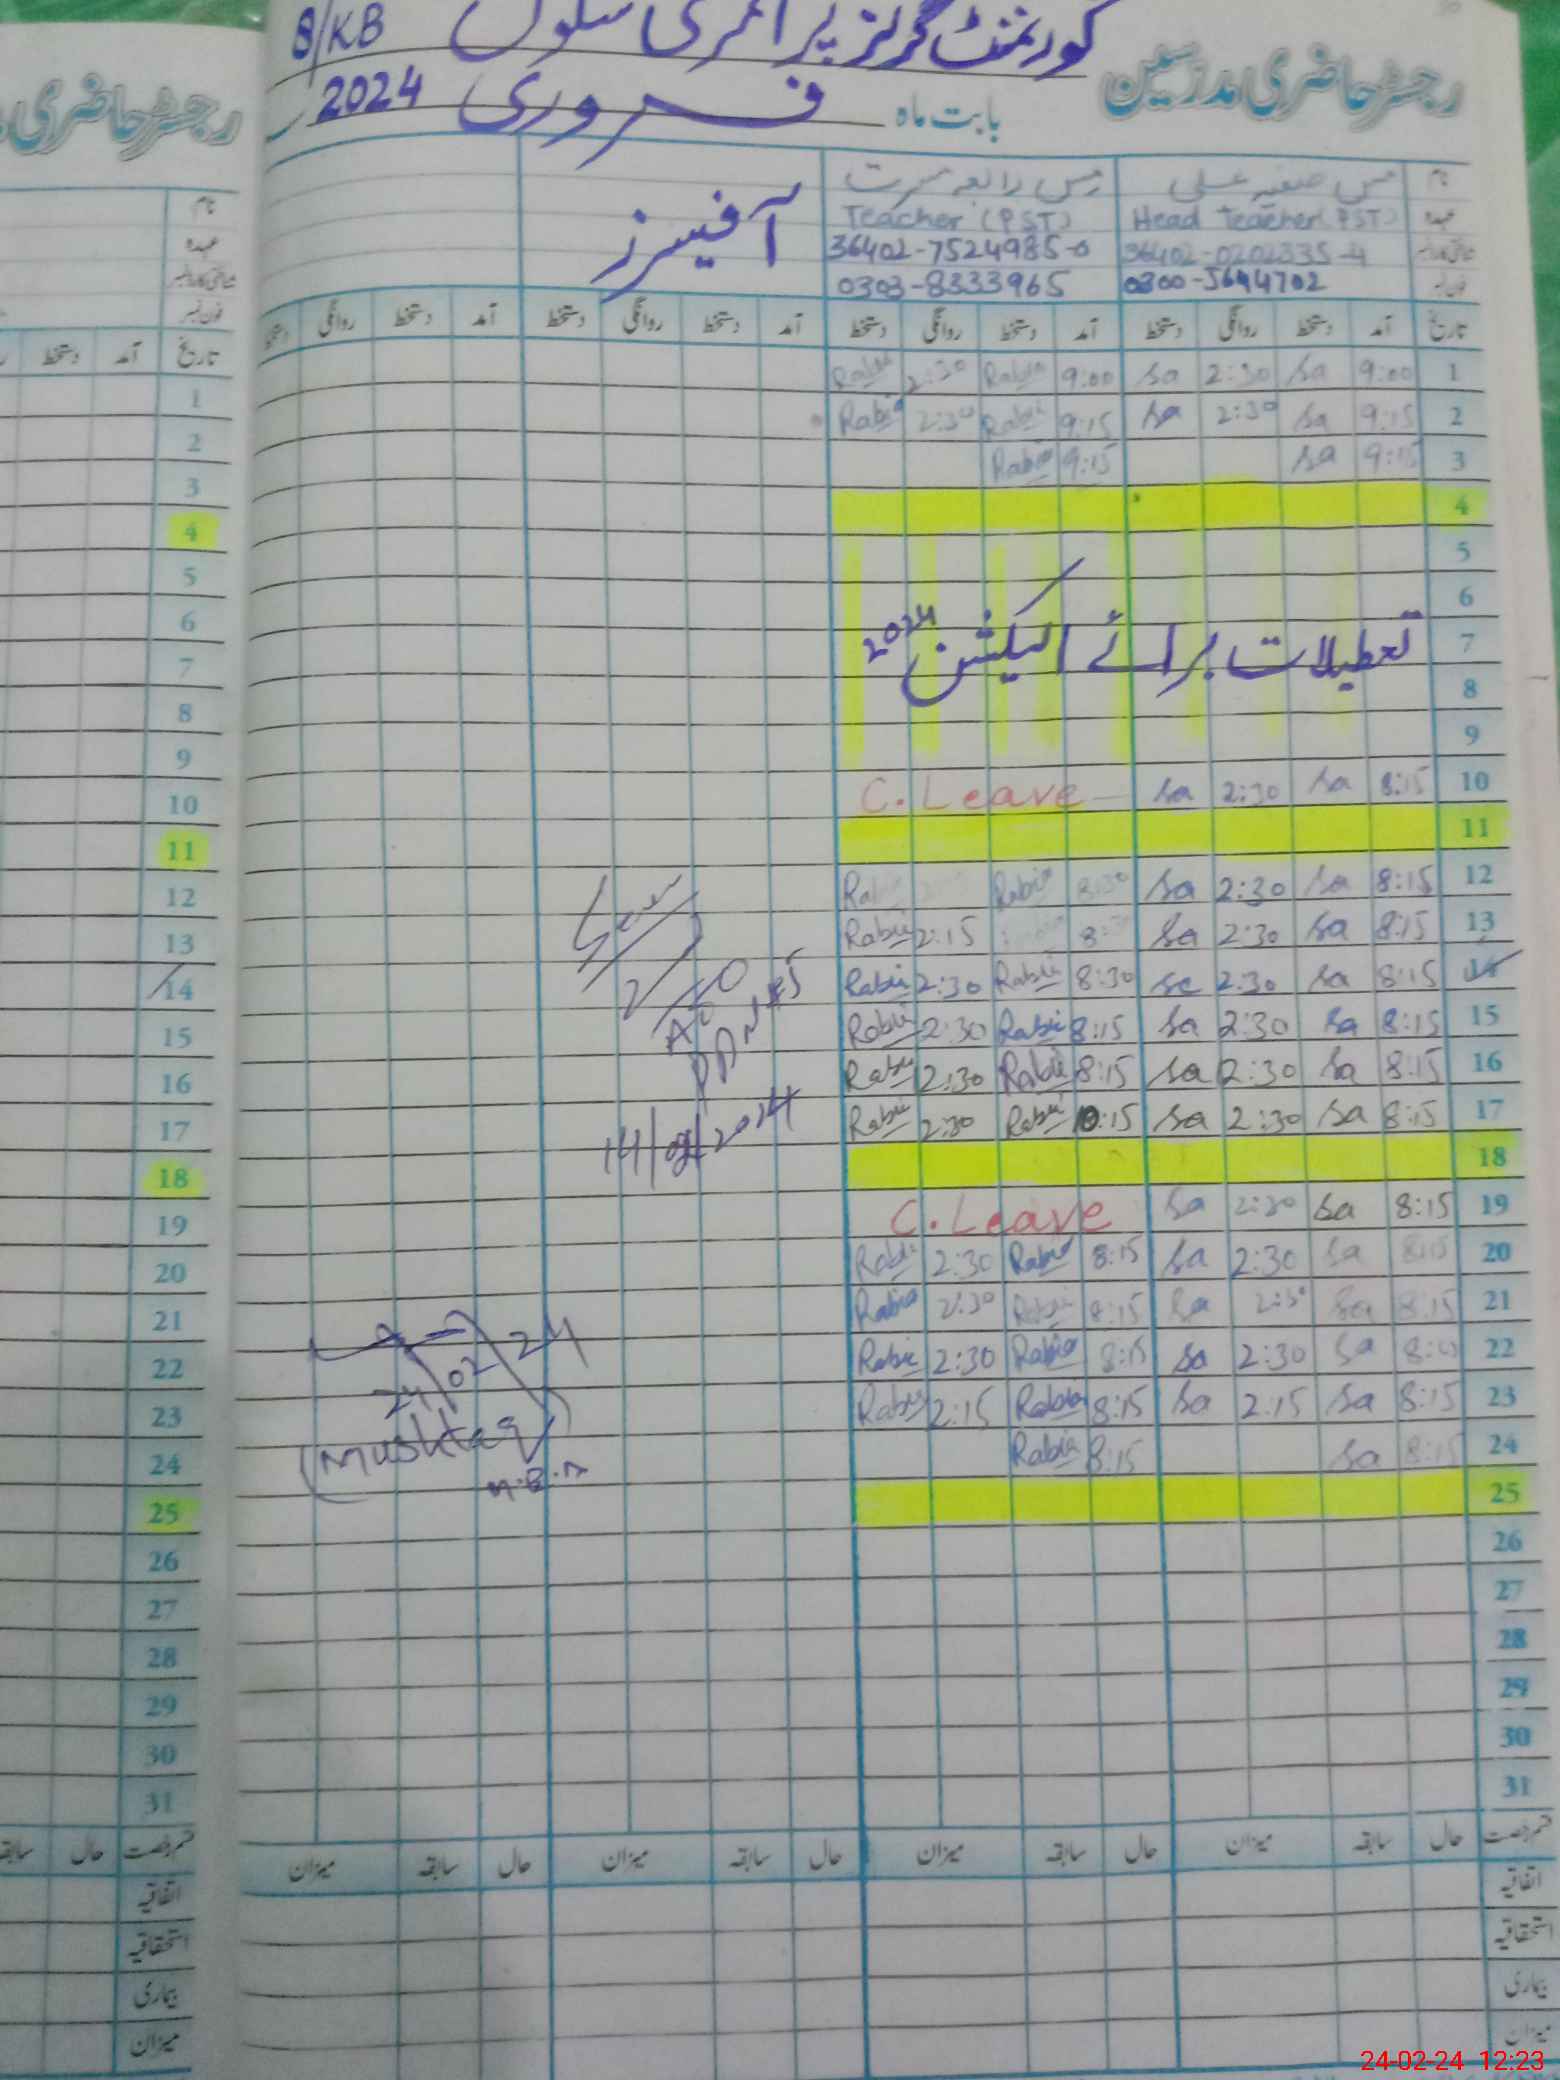 گورنمنٹ گرلز پرائمری سکول 8/KB
رجسٹر حاضری مدرسین
بابت ماہ فروری 2024
نام مس صفیہ علی مس رابعہ مسرت
عہدہ Head Teacher (PST) Teacher (PST)
شناختی کارڈ نمبر 36402-0202335-4 36402-7524985-0
فون نمبر 0300-5644702 0303-8333965
آفیسرز
تاریخ آمد دستخط روانگی دستخط آمد دستخط روانگی دستخط آمد دستخط روانگی دستخط آمد دستخط روانگی دستخط
1 9:00 sa 2:30 sa 9:00 Rabia 2:30 Rabia
2 9:15 sa 2:30 sa 9:15 Rabia 2:30 Rabia
3 9:15 sa 9:15 Rabia
4
5
6
7 تعطیلات برائے الیکشن 2024
8
9
10 8:15 sa 2:30 sa C. Leave
11
12 8:15 sa 2:30 sa 8:30 Rabia
13 8:15 sa 2:30 sa Rabia 2:15
14 8:15 sa 2:30 sa 8:30 Rabia 2:30 Rabia
15 8:15 sa 2:30 sa 8:15 Rabia 2:30 Rabia
16 8:15 sa 2:30 sa 8:15 Rabia 2:30 Rabia
17 8:15 sa 2:30 sa 10:15 Rabia 2:30 Rabia
18
19 8:15 sa 2:30 sa C. Leave
20 8:15 sa 2:30 sa 8:15 Rabia 2:30 Rabia
21 8:15 sa 2:30 sa 8:15 Rabia 2:30 Rabia
22 sa 2:30 sa 8:15 Rabia 2:30 Rabia
23 8:15 sa 2:15 sa 8:15 Rabia 2:15 Rabia
24 8:15 sa 8:15 Rabia
25
26
27
28
29
30
31
14/02/2024
24/02/24
(Mushtaq)
قسم رخصت حال سابقہ میزان حال سابقہ میزان حال سابقہ میزان حال سابقہ میزان
اتفاقیہ
استحقاقیہ
بیماری
میزان
رجسٹر حاضری
نام
عہدہ
شناختی کارڈ نمبر
فون نمبر
تاریخ آمد دستخط
1
2
3
4
5
6
7
8
9
10
11
12
13
14
15
16
17
18
19
20
21
22
23
24
25
26
27
28
29
30
31
قسم رخصت حال سابقہ
اتفاقیہ
استحقاقیہ
بیماری
میزان
24-02-24 12:23